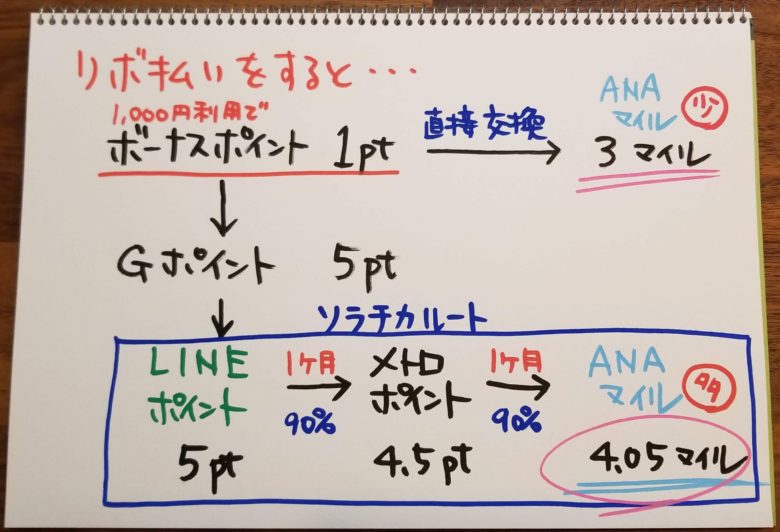 リボ払いをすると・・・
1,000円利用で
ボーナスポイント 1pt
直接交換
ANA
マイル
少
3 マイル
Gポイント 5pt
ソラチカルート
LINE
ポイント
5pt
1ヶ月
90%
メトロ
ポイント
4.5pt
1ヶ月
90%
ANA
マイル
多
4.05マイル